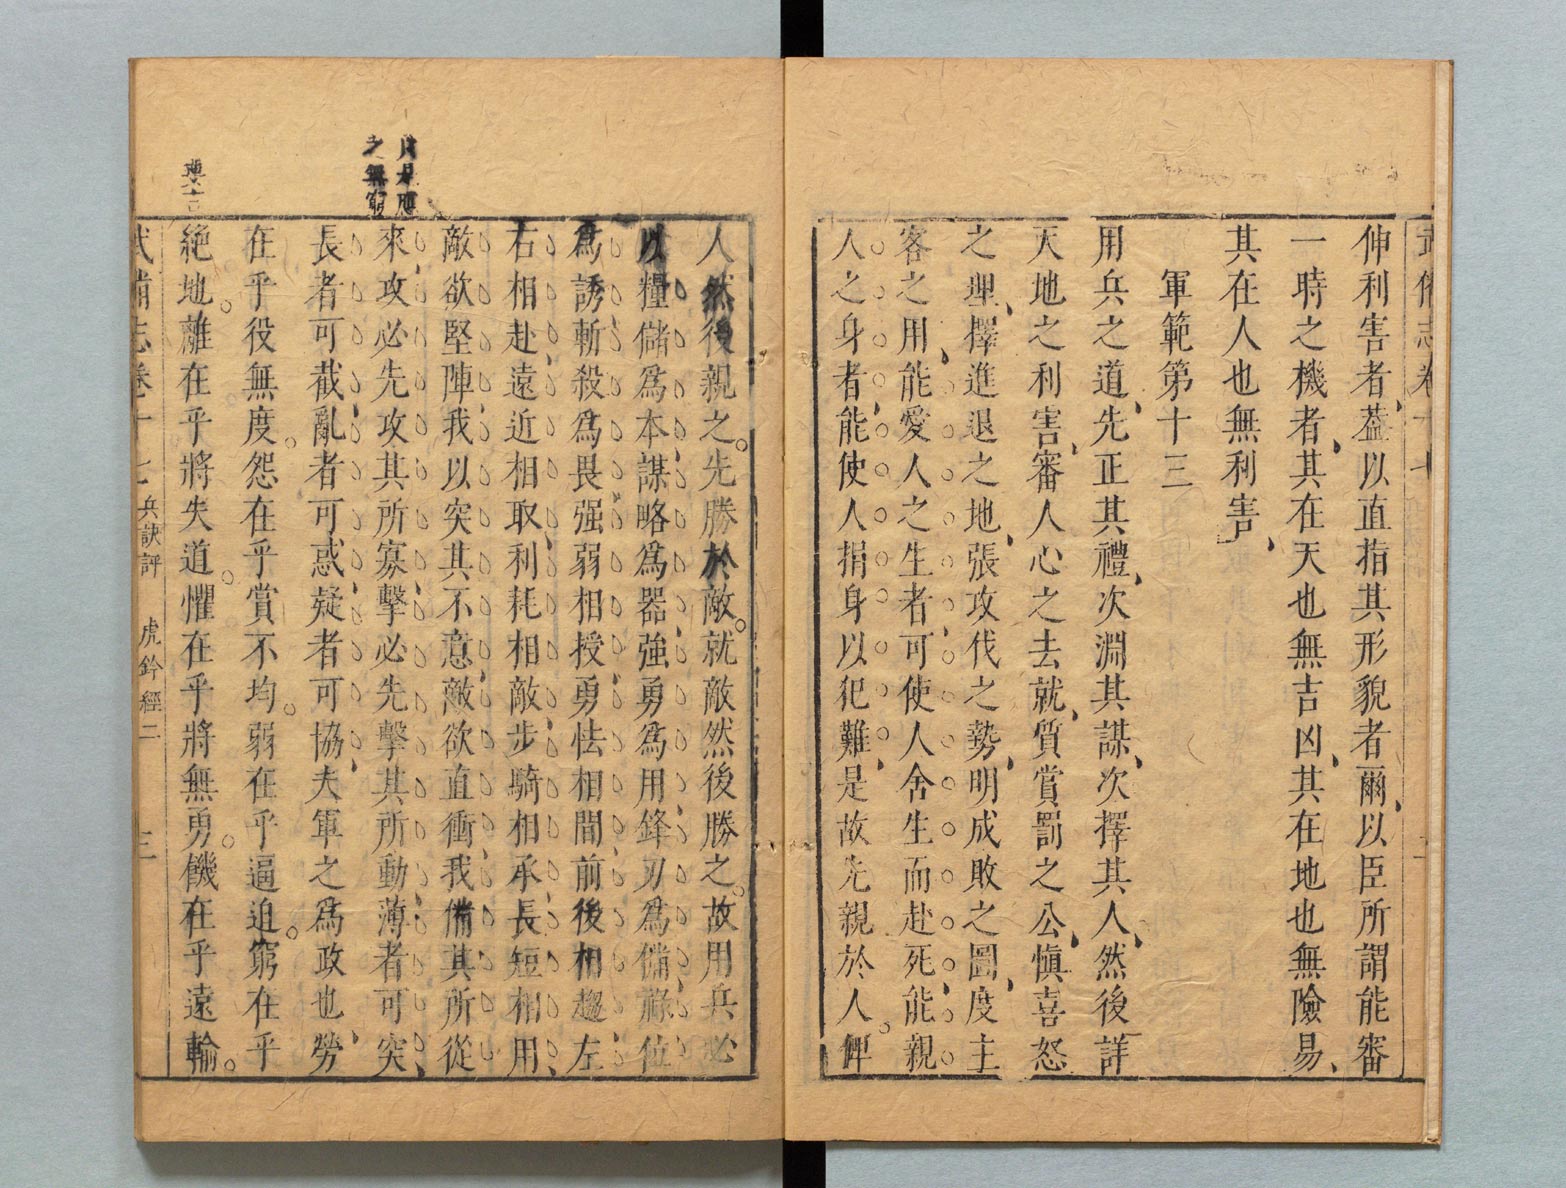 武備志卷十七
伸利害者、蓋以直指其形貌者爾、以臣所謂能審
一時之機者、其在天也無吉凶、其在地也無險易、
其在人也無利害、
軍範第十三
用兵之道、先正其禮、次淵其謀、次擇其人、然後詳
天地之利害、審人心之去就、質賞罰之公、慎喜怒
之理、擇進退之地、張攻伐之勢、明成敗之圖、度主
客之用、能愛人之生者可使人舍生而赴死、能親
人之身者、能使人捐身以犯難、是故先親於人。俾
人然後親之。先勝於敵。就敵然後勝之。故用兵必
以糧儲為本、謀略為器、強勇為用、鋒刃為備、祿位
為誘、斬殺為畏、强弱相授、勇怯相間、前後相趨、左
右相赴、遠近相取、利耗相敵、步騎相承、長短相用、
敵欲堅陣、我以突其不意、敵欲直衝、我備其所從
來、攻必先攻其所寡、擊必先擊其所動、薄者可突、
長者可截、亂者可惑、疑者可協、夫軍之為政也、勞
在乎役無度。怨在乎賞不均。弱在乎逼迫。窮在乎
絕地。離在乎將失道。懼在乎將無勇。饑在乎遠輸。
武備志卷十七 兵訣評 虎鈐經二 三
應
之無窮